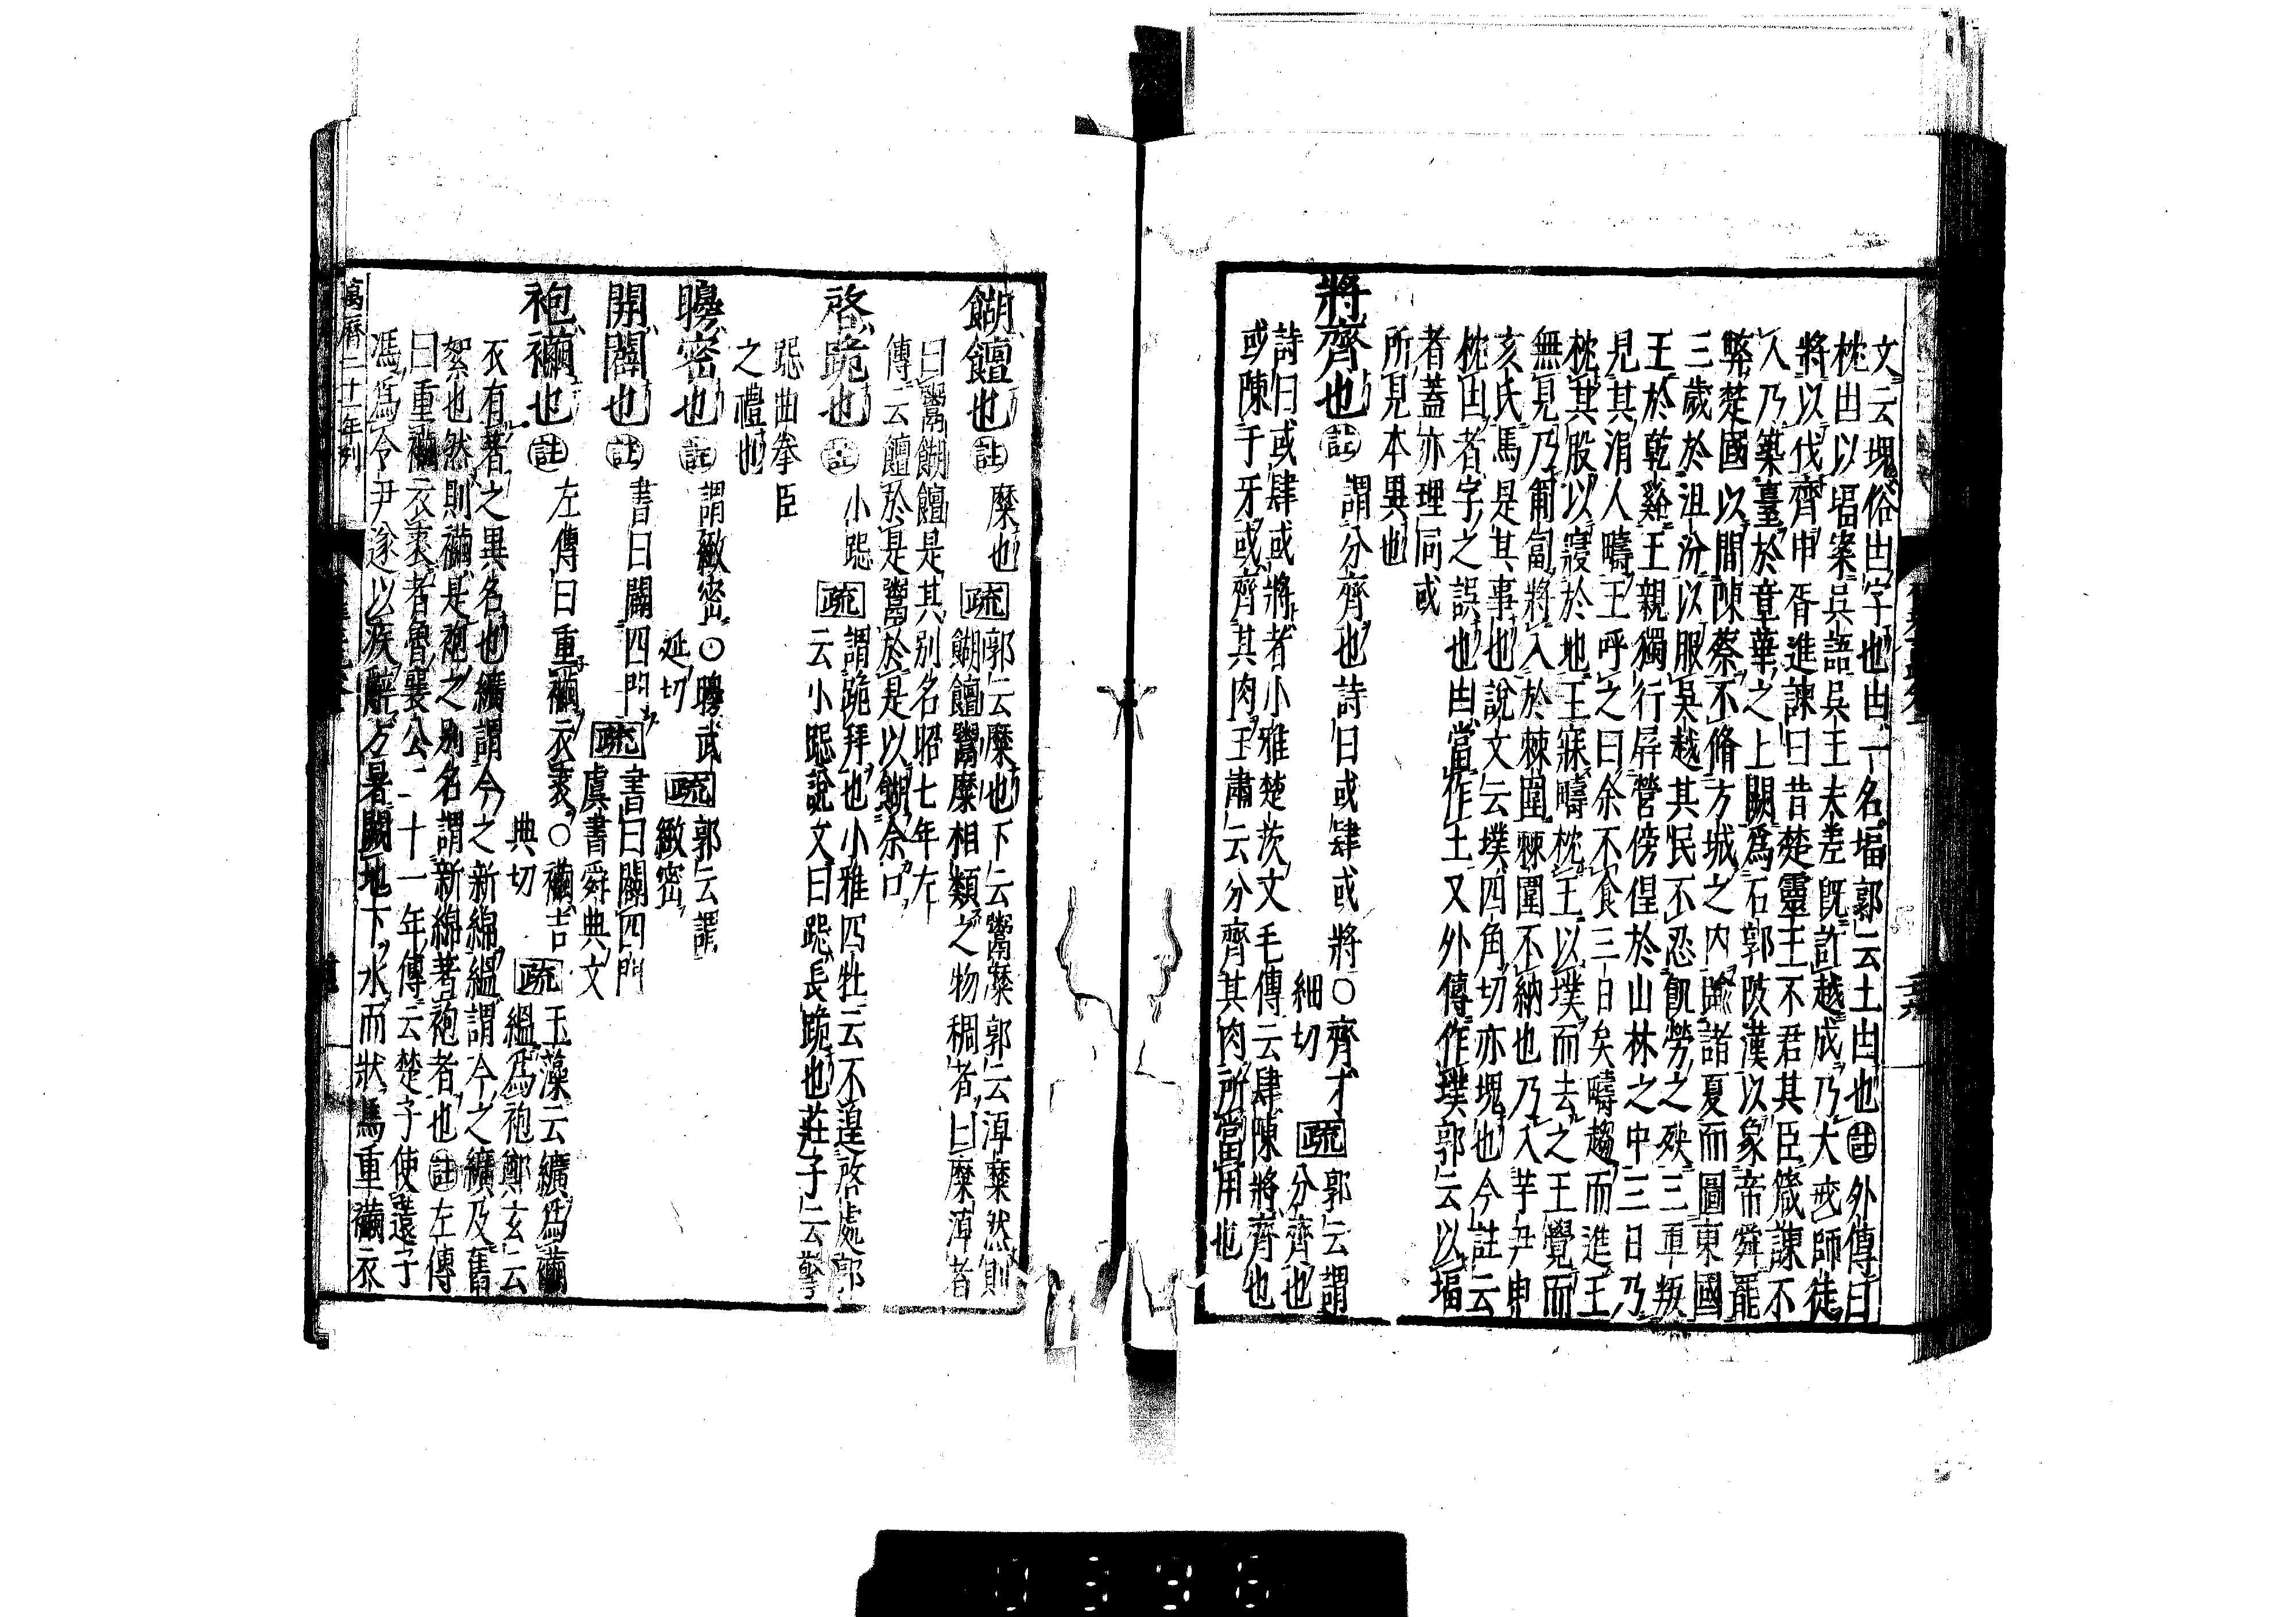 文云塊俗凷字也凷一名塥郭云土凷也註外傳曰
枕凷以塥案吳語吳王夫差旣許越成乃大戒師徒
將以伐齊申胥進諫曰昔楚靈王不君其臣箴諫不
入乃築臺於章華之上闕爲石郭陂漢以象帝舜罷
弊楚國以間陳蔡不脩方城之內踰諸夏而圖東國
三歲於沮汾以服吳越其民不忍飢勞之殃三軍叛
王於乾谿王親獨行屏營傍偟於山林之中三日乃
見其涓人疇王呼之曰余不食三日矣疇趨而進王
枕其股以寢於地王寐疇枕王以墣而去之王覺而
無見乃匍匐將入於棘圍棘圍不納也乃入芋尹申
亥氏馬是其事也說文云墣四角切亦塊也今註云
枕凷者字之誤也凷當作土又外傳作墣郭云以塥
者蓋亦理同或
所見本異也
將齊也註謂分齊也詩曰或肆或將○齊才
細切疏郭云謂
分齊也
詩曰或肆或將者小雅楚茨文毛傳云肆陳將齊也
或陳于牙或齊其肉王肅云分齊其肉所當用也
餬饘也註糜也疏郭云糜也下云鬻糜郭云淖糜然則
餬饘鬻糜相類之物稠者曰糜淖者
曰鬻餬饘是其別名昭七年左
傳云饘於是鬻於是以餬余口
啓跪也註小跽疏謂跪拜也小雅四牡云不遑啓處郭
云小跽說文曰跽長跪也莊子云擎
跽曲拳臣
之禮也
矈密也註謂緻密○矈武
延切疏郭云謂
緻密
開闢也註書曰闢四門疏書曰闢四門
虞書舜典文
袍襺也註左傳曰重襺衣裘○襺吉
典切疏玉藻云纊爲襺
縕爲袍鄭玄云
衣有著之異名也纊謂今之新綿縕謂今之纊及舊
絮也然則襺是袍之別名謂新綿著袍者也註左傳
曰重襺衣裘者魯襄公二十一年傳云楚子使薳子
馮爲令尹遂以疾辭方暑闕地下水而牀焉重襺衣
萬曆二十一年刊